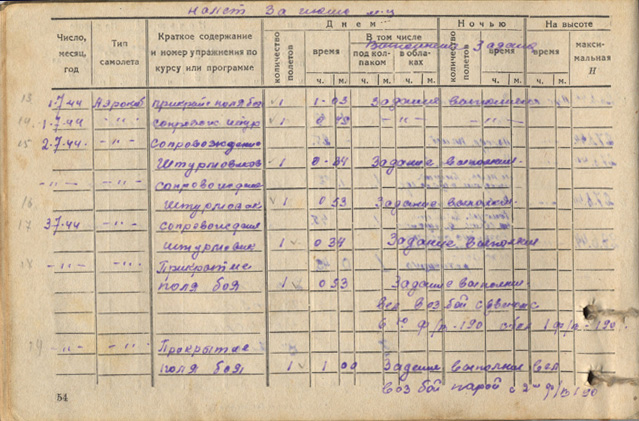 налет За июль м-ц
Днем Ночью На высоте
Число, месяц, год Тип самолета Краткое содержание и номер упражнения по курсу или программе количество полетов время В том числе под колпаком в облаках количество полетов время время максимальная H
Выполнение Задания
ч. м. ч. м. ч. м. ч. м. ч. м.
13 1.7.44 Аэрокоб прикрытие поля боя 1 1-03 Задание выполнено
14 1.7.44 -"- 1 -"- -"-
15 2.7.44 -"- Сопровождение
Штурмовиков 1 0-34 Задание выполнил
-"- -"- Сопровождение
16 Штурмовик 1 0 53 Задание выполнил
17 3.7.44 -"- сопровождения
штурмовик 1 0 34 Задание выполнил
18 -"- -"- Прикрытие
поля боя 1 0 53 Задание выполнил
вел воз бой с
6 ю ф/р-190 сбил 1 ф/р-190.
19 -"- -"- Прикрытие
поля боя 1 1 00 Задание выполнил вел
54 воз бой парой с 2 ф/в 190